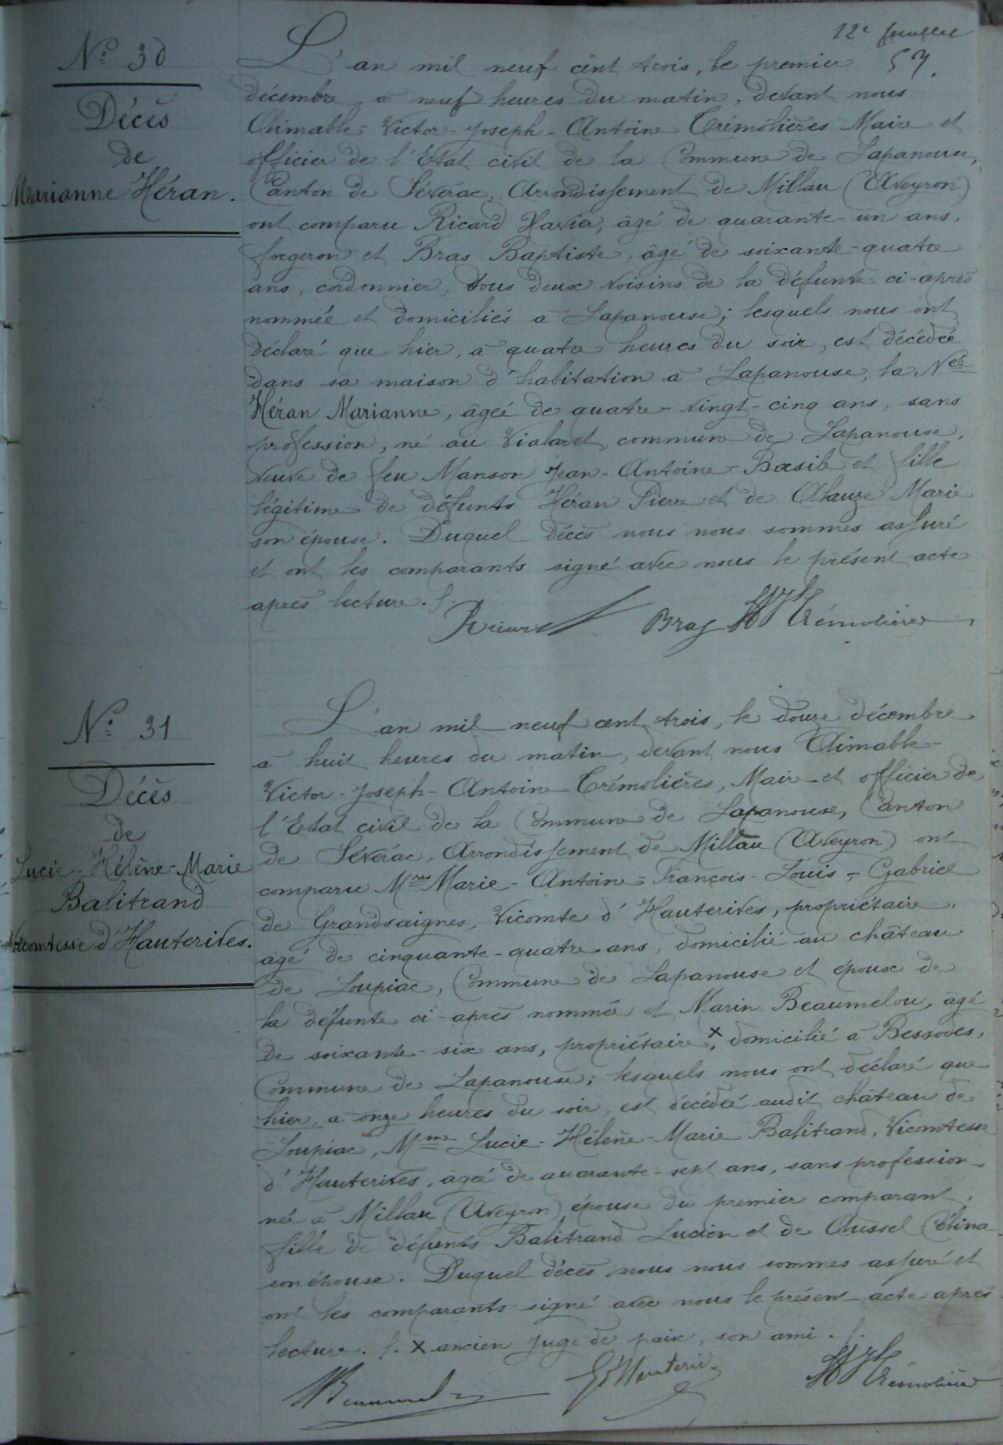 12e feuillet
57.
No 30
Décès
de
Marianne Héran.
L'an mil neuf cent trois, le premier
décembre à neuf heures du matin, devant nous
Aimable-Victor-Joseph-Antoine Trémolières Maire et
officier de l'Etat civil de la Commune de Lapanouse,
Canton de Sévérac, Arrondissement de Millau (Aveyron)
ont comparu Ricard Xavier, âgé de quarante-un ans,
forgeron et Bras Baptiste, âgé de soixante-quatre
ans, cordonnier, tous deux voisins de la défunte ci-après
nommée et domiciliés à Lapanouse; lesquels nous ont
déclaré que hier, à quatre heures du soir, est décédée
dans sa maison d'habitation à Lapanouse, la
Héran Marianne, âgée de quatre-vingt-cinq ans, sans
profession, né au Vialaret, commune de Lapanouse,
veuve de feu Manson Jean-Antoine-Basile et fille
légitime de défunts Héran Pierre et de Alauze Marie
son épouse. Duquel décès nous nous sommes assuré
et ont les comparants signé avec nous le présent acte
après lecture.
Ricard Bras Trémolières
No 31
Décès
de
Lucie-Hélène-Marie
Balitrand
Vicomtesse d'Hauterives.
L'an mil neuf cent trois, le douze décembre
à huit heures du matin, devant nous Aimable-
Victor-Joseph-Antoine Trémolières, Maire et officier de
l'Etat civil de la Commune de Lapanouse, Canton
de Sévérac, Arrondissement de Millau (Aveyron) ont
comparu Marie-Antoine-François-Louis-Gabriel
de Grandsaignes, Vicomte d'Hauterives, propriétaire,
âgé de cinquante-quatre ans, domicilié au château
de Loupiac, Commune de Lapanouse et époux de
la défunte ci-après nommée et Marin Beaumelou, âgé
de soixante-six ans, propriétaire, x domicilié à Bessodes,
Commune de Lapanouse; lesquels nous ont déclaré que
hier, à onze heures du soir, est décédée audit château de
Loupiac, Mme Lucie-Hélène-Marie Balitrand, Vicomtesse
d'Hauterives, âgée de quarante-sept ans, sans profession,
née à Millau (Aveyron) épouse du premier comparant,
fille de défunts Balitrand Lucien et de Aussel Célina
son épouse. Duquel décès nous nous sommes assuré et
ont les comparants signé avec nous le présent acte après
lecture. x ancien juge de paix, son ami.
Trémolières